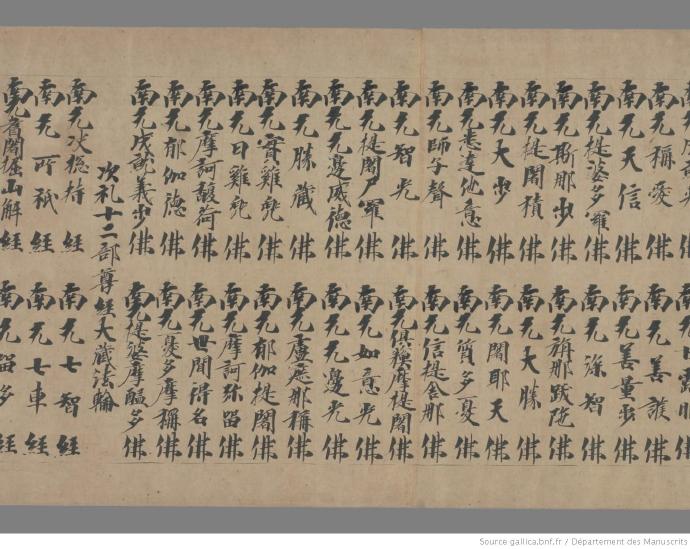 南无稱愛佛 南无善誰佛
南无天信佛 南无善量步佛
南无提婆多羅佛 南无深智佛
南无斯那步佛 南无旃那跋陁佛
南无提闍積佛 南无大勝佛
南无大步佛 南无闍耶天佛
南无悉達他意佛 南无質多憂佛
南无師子聲佛 南无信提舍那佛
南无智光佛 南无俱薩摩提闍佛
南无提闍尸羅佛 南无如意光佛
南无无邊威德佛 南无无邊光佛
南无勝藏佛 南无盧遮那稱佛
南无寶雞兜佛 南无郁伽提闍佛
南无日雞兜佛 南无摩訶弥留佛
南无摩訶馥荷佛 南无世聞得名佛
南无郁伽德佛 南无憂多摩稱佛
南无成就義步佛 南无提婆摩醯多佛
次礼十二部尊經大藏法輪
南无决總持經 南无七智經
南无所祇經 南无七車經
南无耆闍崛山解經 南无留多經
Source gallica.bnf.fr / Département des Manuscrits